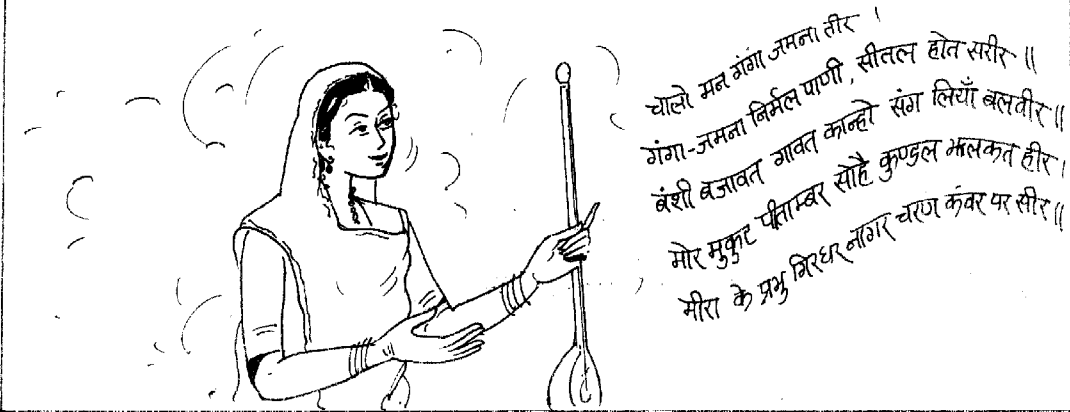 चालो मन गंगा जमना तीर ।
गंगा-जमना निर्मल पाणी, सीतल होत सरीर ॥
बंशी बजावत गावत कान्हो संग लियाँ बलवीर ॥
मोर मुकुट पीताम्बर सोहै कुण्डल झलकत हीर ।
मीरा के प्रभु गिरधर नागर चरण कंवर पर सीर ॥